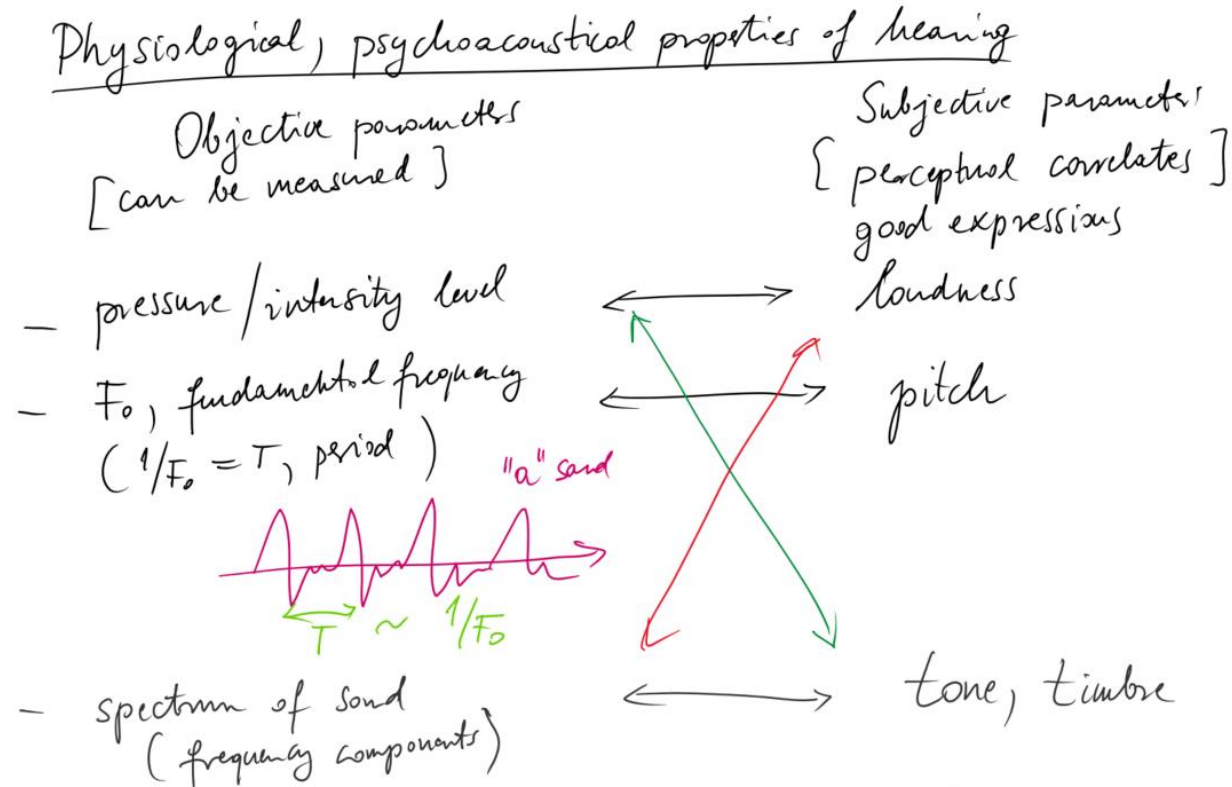 Physiological, psychoacoustical properties of hearing
Objective parameters
[can be measured]
Subjective parameters
[perceptual correlates]
good expressions
- pressure/intensity level
loudness
- F₀, fundamental frequency
(1/F₀ = T, period)
pitch
"a" sound
T ~ 1/F₀
- spectrum of sound
(frequency components)
tone, timbre